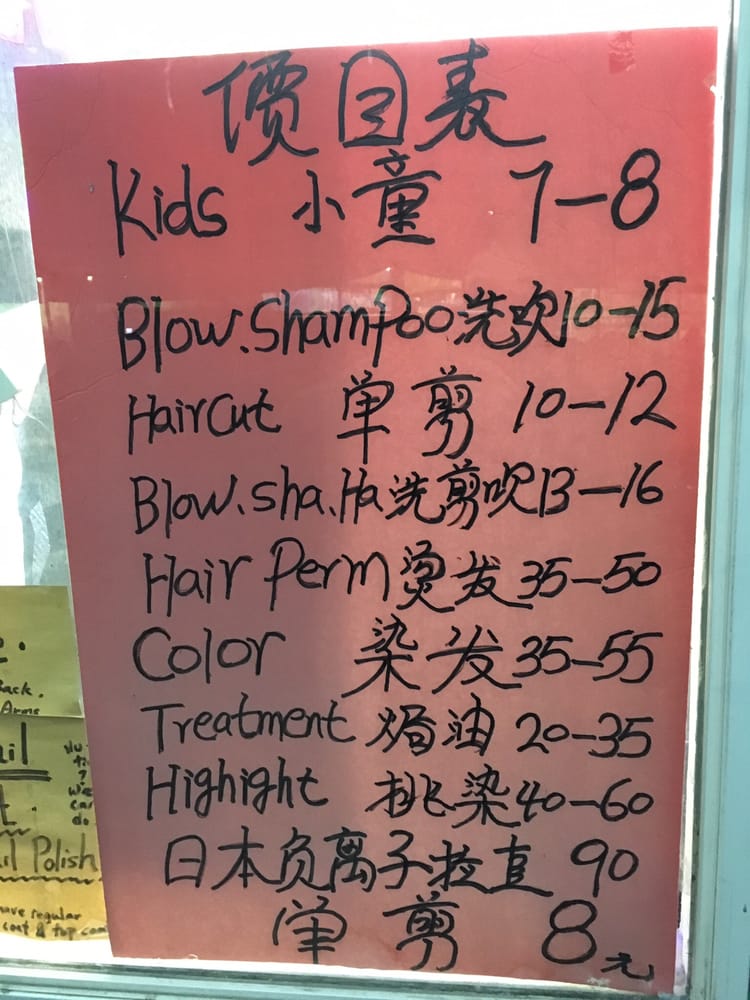 價目表
Kids 小童 7-8
Blow.Shampoo洗吹10-15
Haircut 单剪 10-12
Blow.sha.Ha洗剪吹13-16
Hair Perm烫发35-50
Color 染发35-55
Treatment 焗油 20-35
Highight 挑染40-60
日本负离子拉直 90
单剪 8元
Back.
Arms
il Polish
have regular
coat & top coat